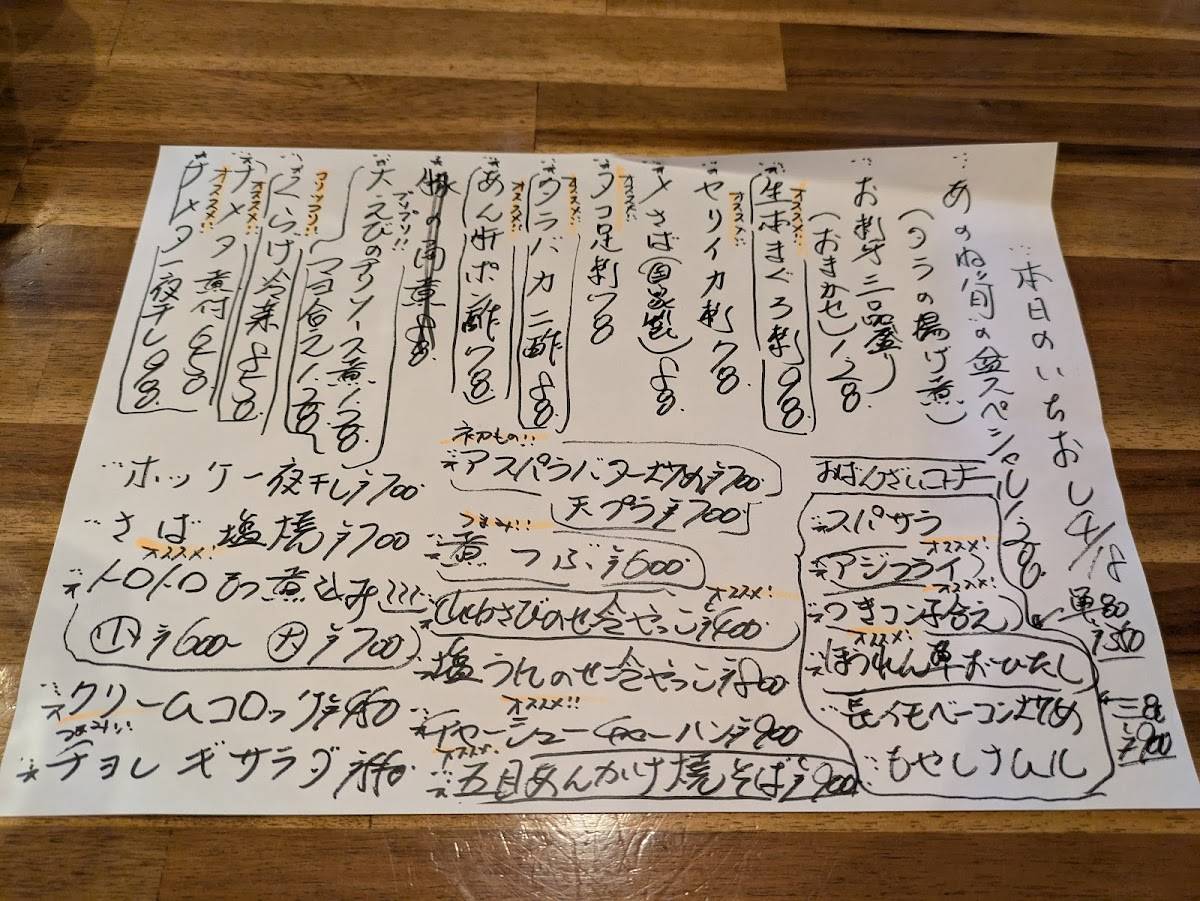 本日のいちおし 4/18
あのね旬の盆スペシャル 1,28
(タラの揚げ煮)
お刺身三品盛り
(おまかせ) 1,28
オススメ!
生本まぐろ刺 98
オススメ!!
ヤリイカ刺 78
〆さば(自家製) 88
オススメ!
タコ足刺 78
オススメ!
ウラバカニ酢 88
オススメ!
あん肝ポン酢 78
プリプリ!!
大えびのチリソース煮 1,28
マヨ合え 1,28
コリッコリ!!
くらげ冷菜 85
オススメ!
ナメタ煮付 98
オススメ!
ナメタ一夜干し 98
おばんざいコーナー
単品
¥350
三品
¥900
スパサラ
オススメ!
アジフライ
オススメ!
つきコン子合え
オススメ!
ほうれん草おひたし
長イモベーコン炒め
もやしナムル
初もの!!
アスパラバター炒め ¥700
天プラ ¥700
つまみ!!
煮つぶ ¥600
オススメ!
山わさびのせ冷やっこ ¥400
塩うにのせ冷やっこ ¥800
オススメ!!
チャーシューチャーハン ¥900
オススメ!
五目あんかけ焼そば ¥900
ホッケ一夜干し ¥700
さば塩焼 ¥700
オススメ!
トロトロもつ煮込み
小 ¥600 大 ¥700
クリームコロッケ
つまみに!!
チョレギサラダ